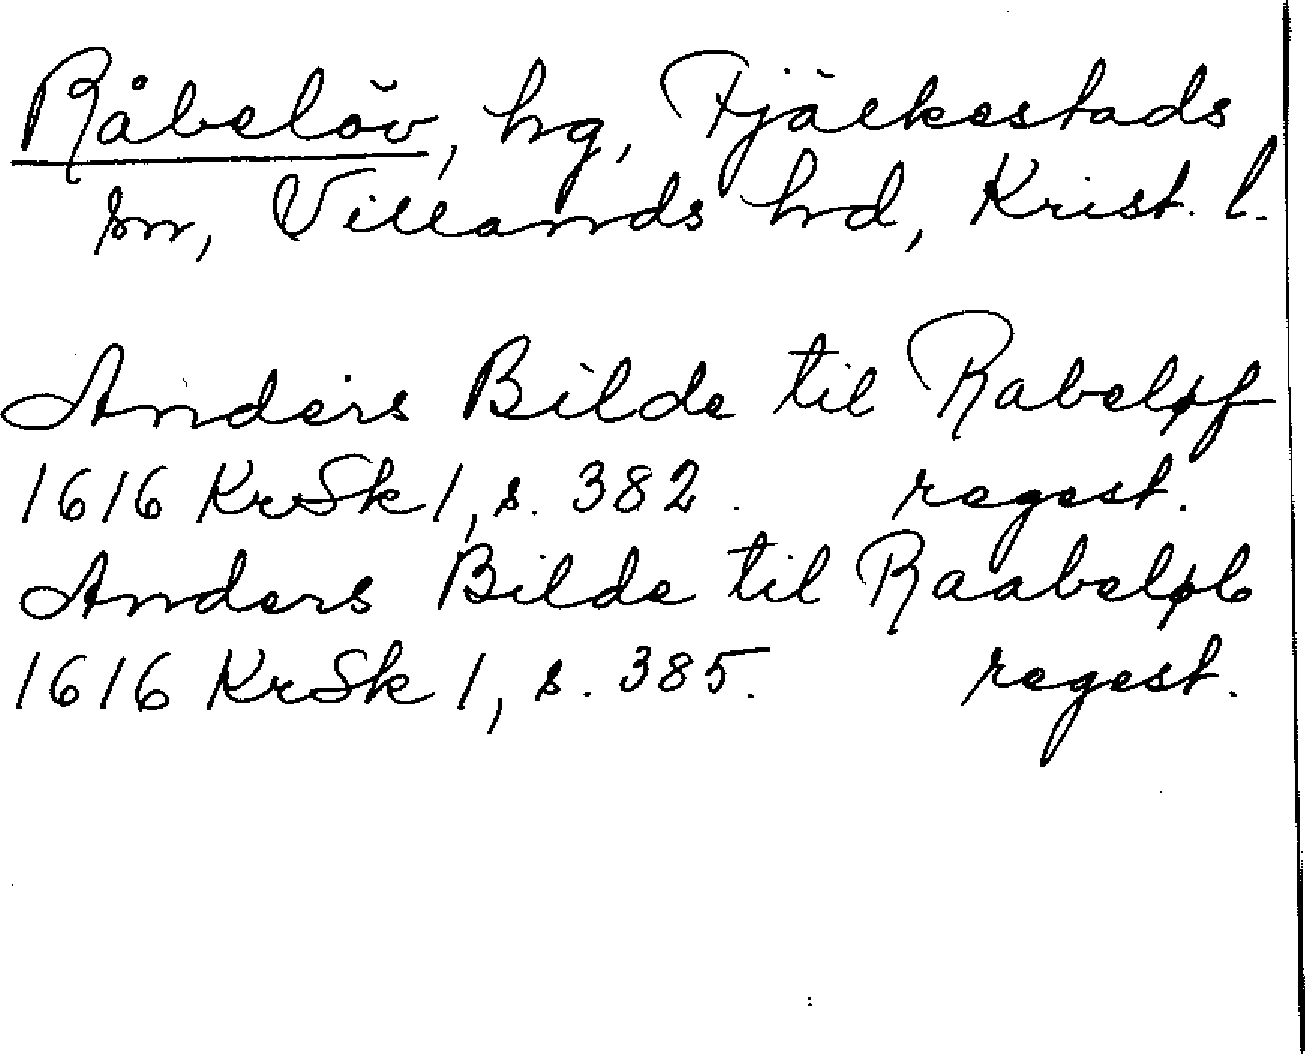 Råbelöv, hg, Fjälkestads
sn, Villands hd, Krist. l.
Anders Bilde til Rabeløf
1616 KrSk 1, s. 382. regest.
Anders Bilde til Raabeløb
1616 KrSk 1, s. 385. regest.